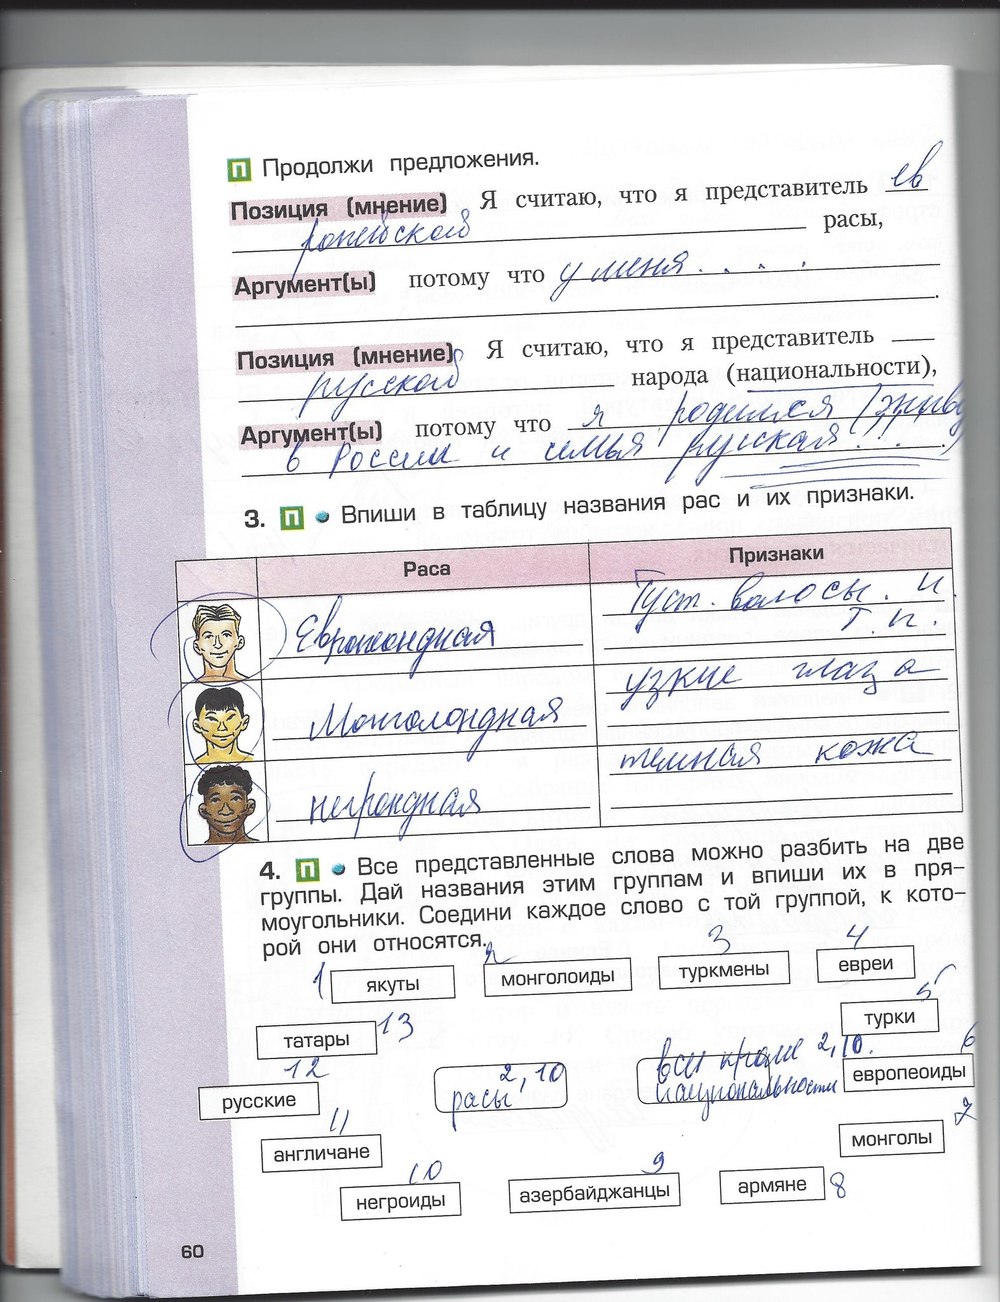 П Продолжи предложения.
Позиция (мнение) Я считаю, что я представитель ев
ропейской расы,
Аргумент(ы) потому что у меня . . . .
Позиция (мнение) Я считаю, что я представитель
русской народа (национальности),
Аргумент(ы) потому что я родился (живу
в России и семья русская!!! .
3. П • Впиши в таблицу названия рас и их признаки.
Раса Признаки
Европеоидная Густ. волосы. и
т. п.
Монголоидная узкие глаза
негроидная темная кожа
4. П • Все представленные слова можно разбить на две
группы. Дай названия этим группам и впиши их в пря-
моугольники. Соедини каждое слово с той группой, к кото-
рой они относятся.
1 якуты 2 монголоиды 3 туркмены 4 евреи
татары 13 турки 5
12 русские 2, 10 расы все кроме 2, 10. национальности европеоиды 6
11 англичане монголы 7
10 негроиды 9 азербайджанцы армяне 8
60